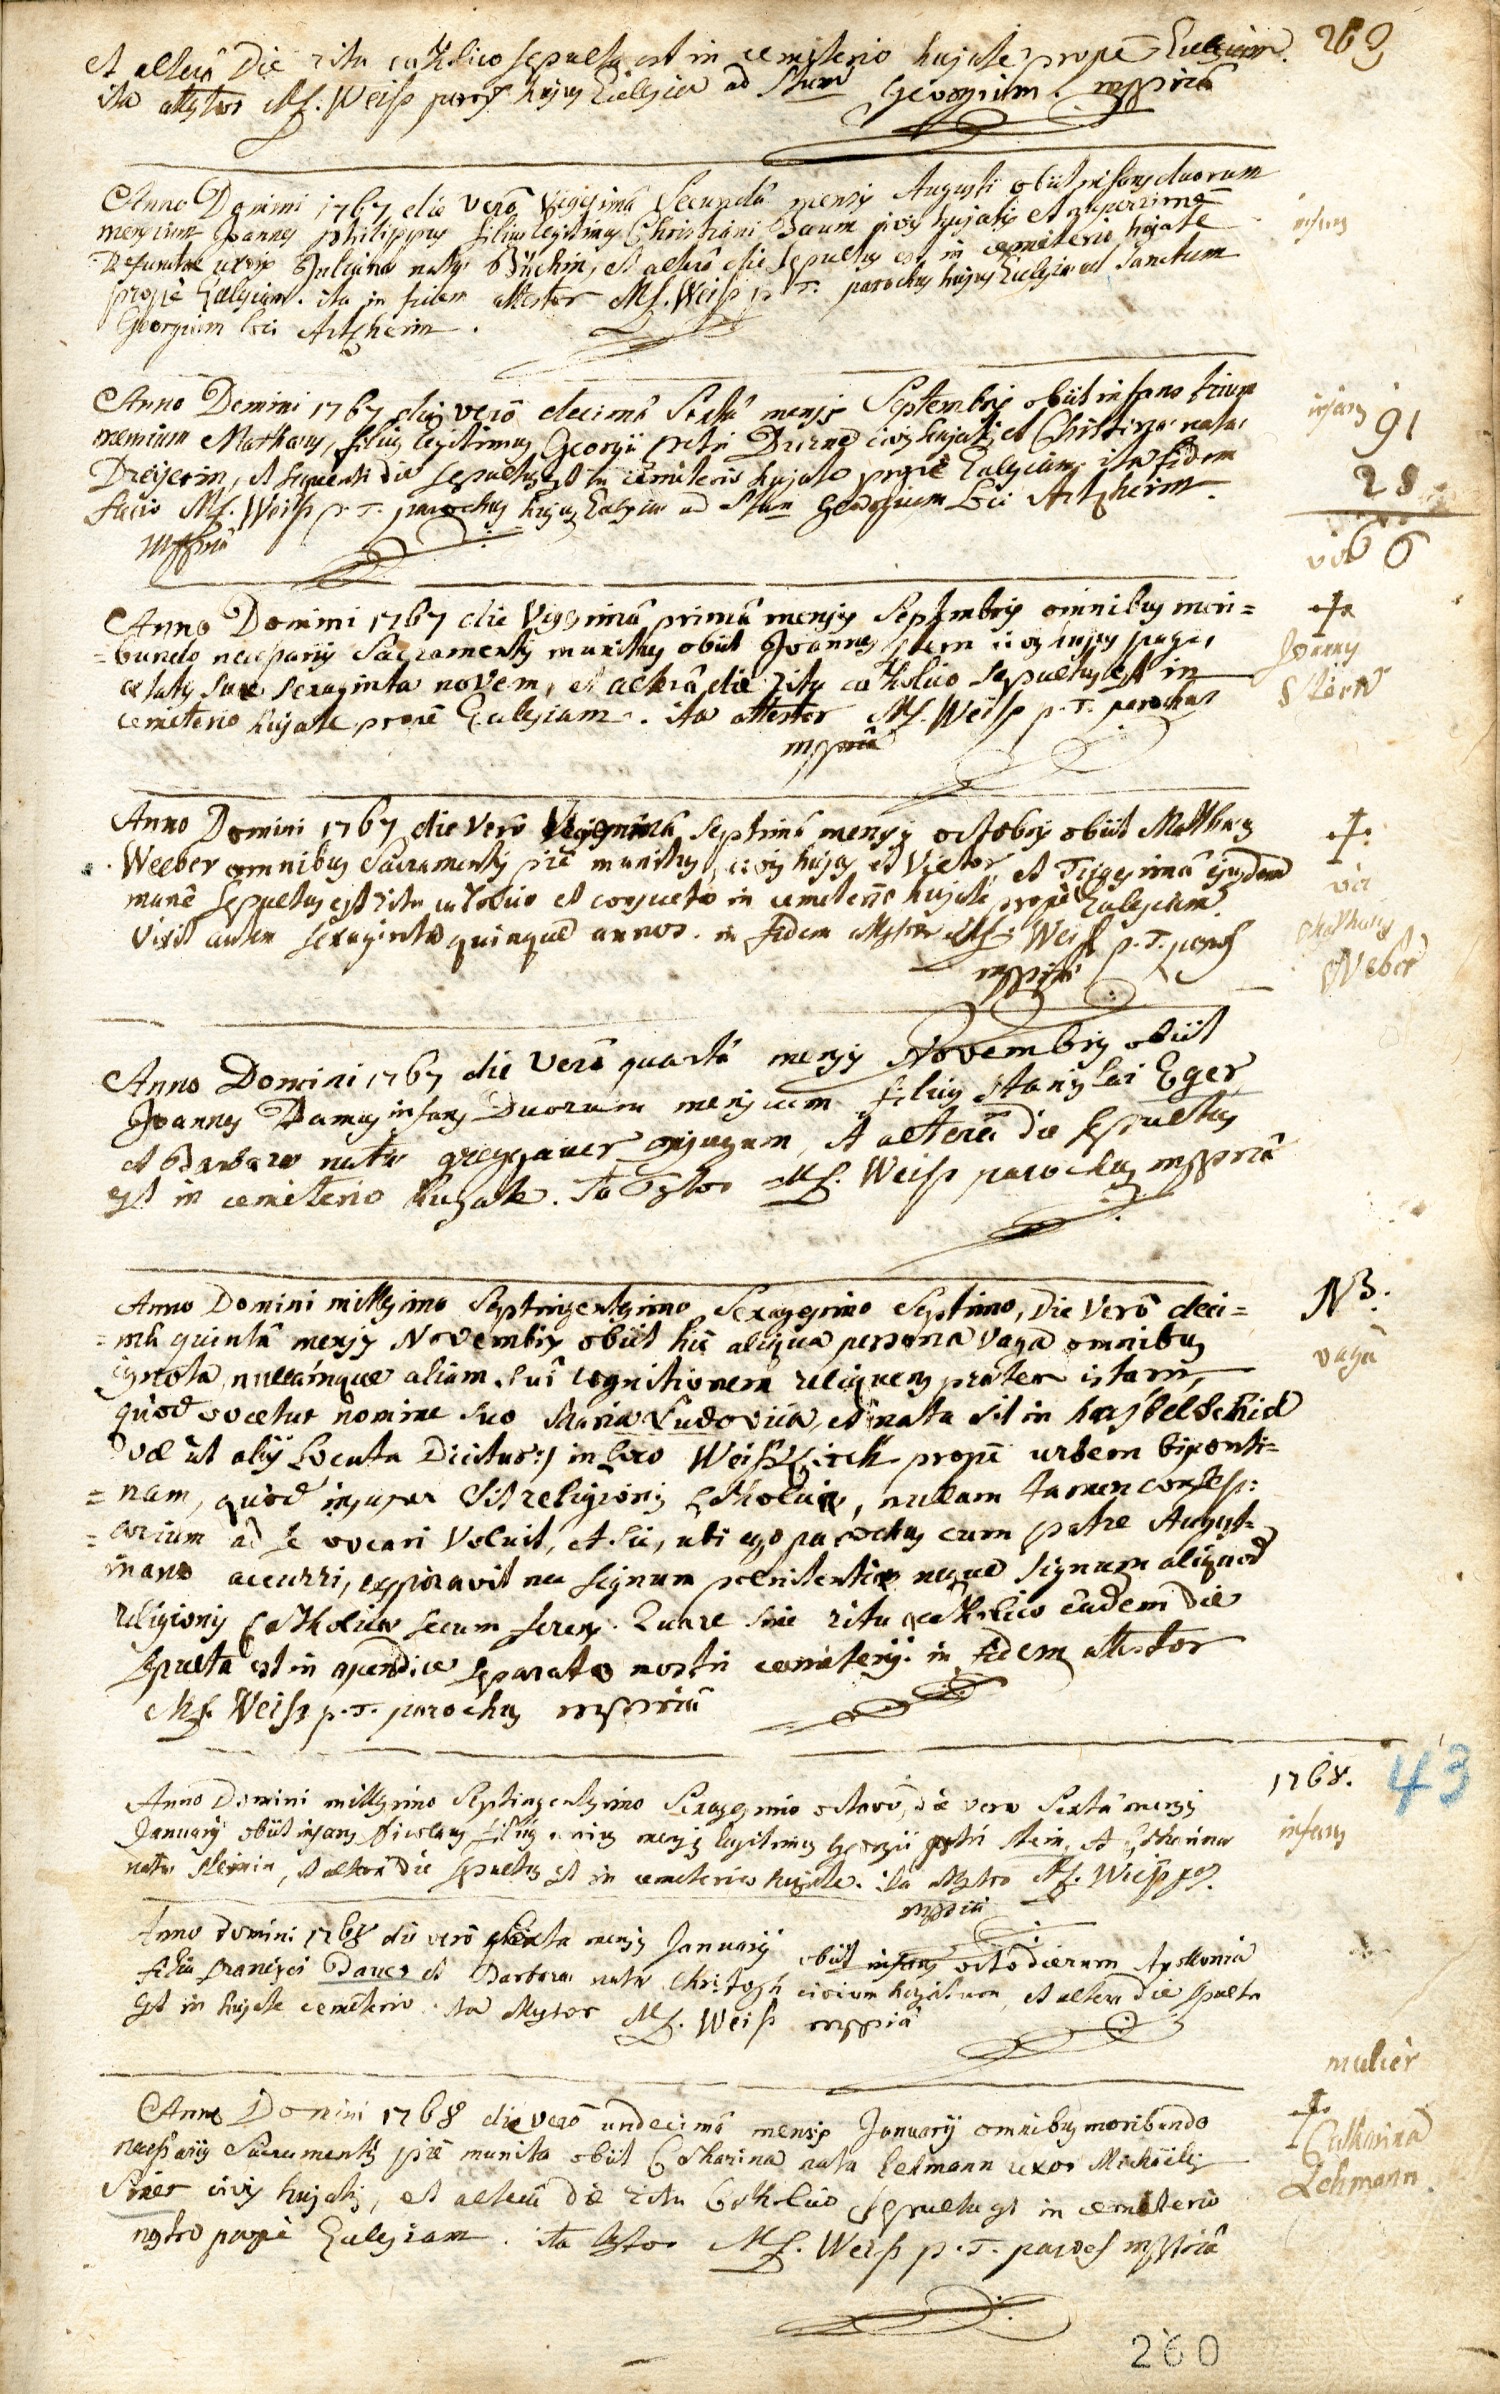 269
et alterâ die ritu catholico sepulta est in cemiterio hujate propè Ecclesiam.
ita attestor Mf. Weiß paroch hujus Ecclesiae ad Stum Georgium. mppriâ
Anno Domini 1767 die verô vigesimâ secundâ mensis Augusti obiit infans duorum
mensium Joannes philippus filius legitimus Christiani civis hujatis et nuperrimè
defunctae uxoris natae et alterâ die sepultus est in cemeterio hujate
propè Ecclesiam. ita in fidem attestor Mf. Weiß p. T. parochus hujus Ecclesiae ad Sanctum
Georgium loci Artzheim.
infans
Anno Domini 1767 die verô decimâ Sextâ mensis Septembris obiit infans trium
Mathaeus, filius legitimus Georgii petri civis hujatis et Christinae natae
Dreijerin, et sequenti die sepultus est in cemiterio hujate propè Ecclesiam, ita fidem
facio Mf. Weiß p. T. parochus hujus Ecclesiae ad Stum Georgium loci Artzheim.
mppriâ
infans
91
28
66
Anno Domini 1767 die Vigesimâ primâ mensis Septembris omnibus mori=
=bundo necessariis Sacramentis munitus obiit Joannes stern civis hujus pagi,
aetatis suae sexaginta novem, et alterâ die ritu catholico sepultus est in
cemeterio hujate propè Ecclesiam. ita attestor Mf. Weiß p. T. parochus
mppriâ
Joannes
Stern
Anno Domini 1767 die verô Vigesimâ septimâ mensis octobris obiit Mathaeus
Weeber omnibus Sacramentis piè munitus, civis hujas et Vietor, et Trigesimâ ejusdem
manè sepultus est ritu catholico et consueto in cemeterio hujate propè Ecclesiam.
Vixit autem sexaginta quinque annos. in fidem attestor Mf. Weiß p. T. paroch
mppriâ
vir
Mathaeus
Weber
Anno Domini 1767 die verô quartâ mensis Novembris obiit
Joannes Damus infans duorum mensium filius stanislai Eger
et Barbarae natae greggauer conjugum, et alterâ die sepultus
est in cemiterio hujate. Ita Testor Mf. Weiß parochus mppriâ
Anno Domini millesimo Septingentesimo Sexagesimo Septimo, die verô deci=
=mâ quintâ mensis Novembris obiit hic aliqua persona vaga omnibus
ignota, nullamque aliam suî cognitionem relinquens praeter istam,
quòd vocetur nomine suo Maria Ludovica, et nata sit in haßbelscheid
vel ut aliis locuta dicitur :/ in loco Weißkirch propè urbem biponti=
=nam, quòd insuper sit religionis catholicae, nullam tamen confess:
=arium ad se vocari voluit, et sic, ubi ego parochus cum patre August-
iniano accurri, expiravit nec signum penitentiae neque signum aliquod
religionis catholicae secum ferens. Quare sine ritu catholico eâdem die
sepulta est in apendice separato nostri cemiterij. in fidem attestor
Mf. Weiß p. T. parochus mppriâ
NB.
vaga
1768.
43
Anno Domini millesimo Septingentesimo Sexagesimo octavo, die vero Sextâ mensis
Januarij obiit infans Nicolaus filius unius mensis legitimus Georgii petri stein, et Catharinae
natae et alterâ die sepultus est in cemeterio hujate. ita attestor Mf. Weiß par.
mppriâ
infans
Anno Domini 1768 die verô sexta mensis Januarij obiit infans octo dierum Apollonia
filia francisci Bauer et Barbarae natae Christoph civium hujatium, et altera die sepulta
est in hujate cemeterio. ita attestor Mf. Weiß mppriâ
Anno Domini 1768 die verô undecimâ mensis Januarij omnibus moribundo
necessariis Sacramentis piè munita obiit Catharina nata Lehmann uxor Michaëlis
civis hujatis, et alterâ die ritu Catholico sepulta est in cemeterio
nostro propè Ecclesiam. ita testor Mf. Weiß p. T. paroch mppriâ
mulier
Catharina
Lehmann
260